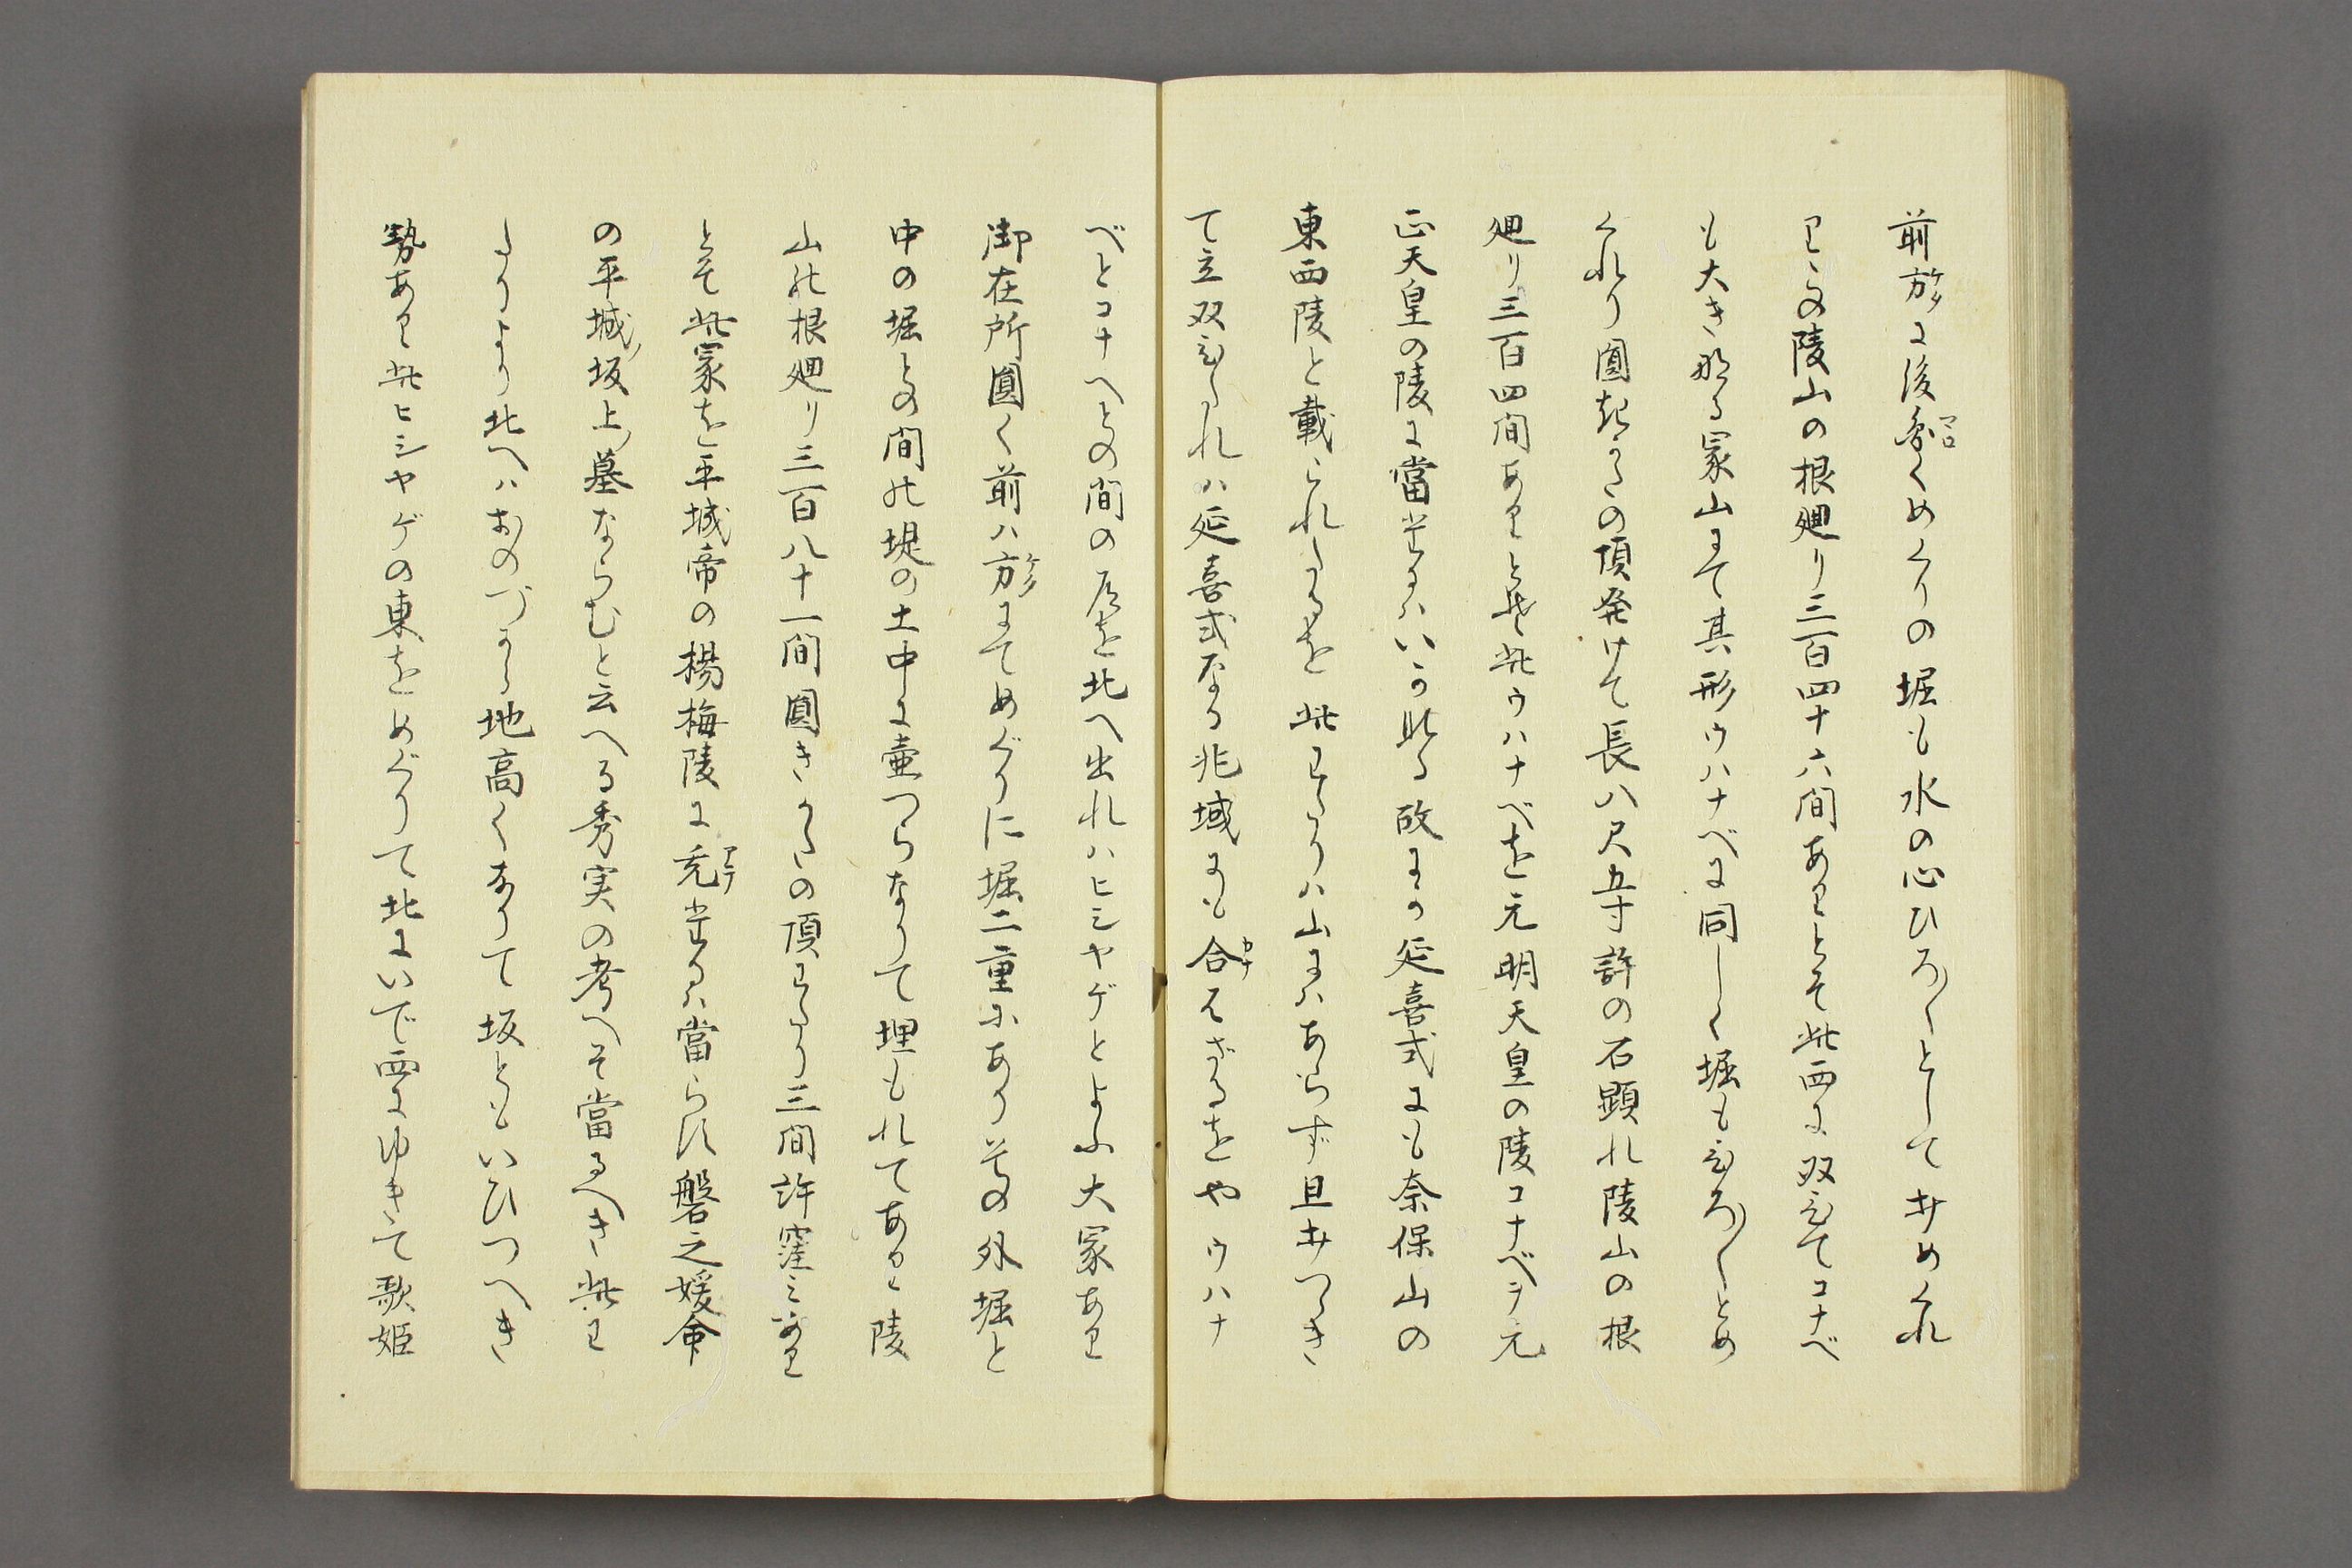 前方に後圓くめくりの堀も水の心ひろ〱として廾めくれ
りその陵山の根廻り三百四十六間ありとそ此西に双ひてコナベ
も大きなる冡山にて其形ウハナベに同しく堀もひろ〱とめ
くれり圓起かたの頂発けて長八尺五寸許の石顕れ陵山の根
廻り三百四間ありとそ此ウハナベを元明天皇の陵コナベヲ元
正天皇の陵に當しはいかなる故にか延喜式にも奈保山の
東西陵と載られたるを此わたりハ山にハあらず且廾つゝき
て立双ひたれハ延喜式なる兆域にも合はざるをやウハナ
べとコナへとの間の尾を北へ出れハヒシヤゲとよふ大冡あり
御在所圓く前ハ方にてめぐりに堀二重にあり其の外堀と
中の堀との間の堤の土中に壷つらなりて埋もれてあり陵
山の根廻り三百八十一間圓きかたの頂わたり三間許窪ミあり
とそ此冡を平城帝の楊梅陵に充しハ當らす磐之媛命
の平城坂上墓ならむと云へる秀実の考へそ當るへき此わ
たりより北へハおのづから地高くなりて坂ともいひつへき
勢あり此ヒシヤゲの東をめぐりて北にいで西にゆきて歌姫